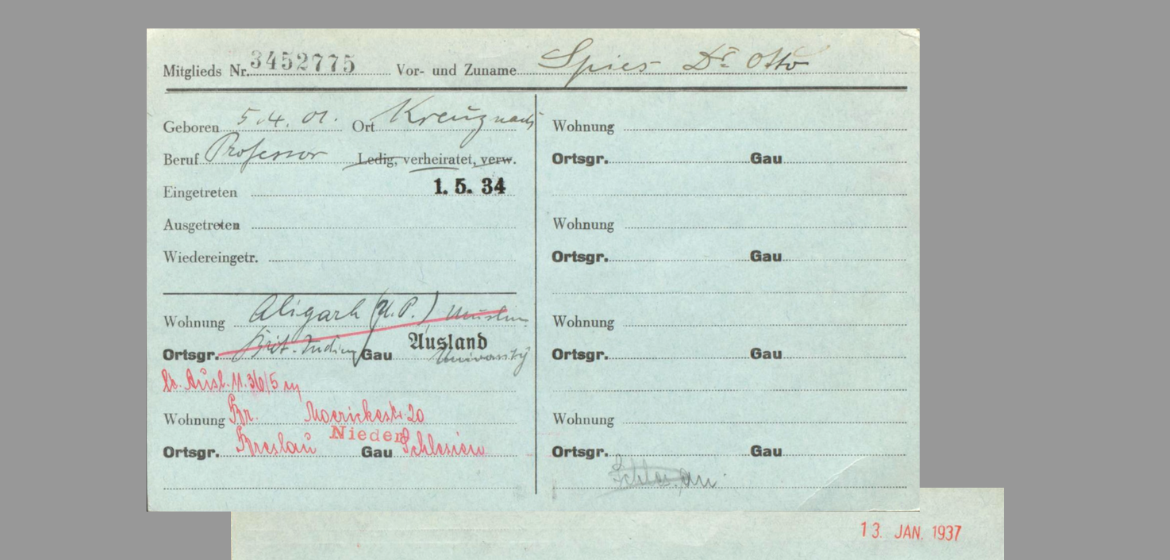 Mitglieds Nr. 3452775 Vor- und Zuname Spies Dr Otto
Geboren 5.4.01. Ort Kreuznach
Beruf Professor Ledig, verheiratet, verw.
Eingetreten 1. 5. 34
Ausgetreten
Wiedereingetr.
Wohnung Aligarh (U.P.) Muslim
Ortsgr. Brit. Indien Gau Ausland University
Ausl. 11.36/5
Wohnung Br. Moerickestr. 20
Ortsgr. Breslau Gau Nieder Schlesien
Wohnung
Ortsgr. Gau
Wohnung
Ortsgr. Gau
Wohnung
Ortsgr. Gau
Wohnung
Ortsgr. Gau
Schlesien
13. JAN. 1937